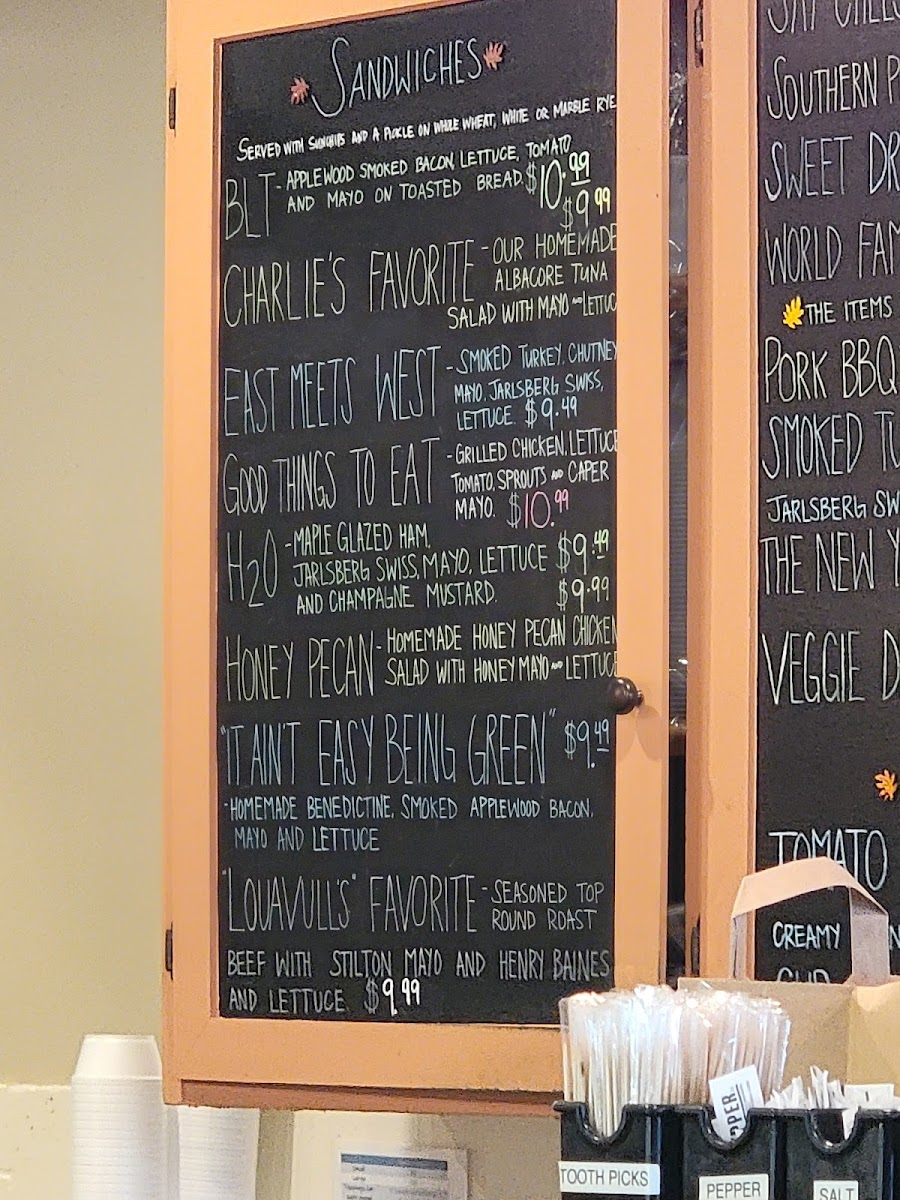 SANDWICHES
SERVED WITH SUNCHIPS AND A PICKLE ON WHOLE WHEAT, WHITE OR MARBLE RYE
BLT - APPLEWOOD SMOKED BACON, LETTUCE, TOMATO
AND MAYO ON TOASTED BREAD. $10.99
$9.99
CHARLIE'S FAVORITE - OUR HOMEMADE
ALBACORE TUNA
SALAD WITH MAYO AND LETTUC
EAST MEETS WEST - SMOKED TURKEY, CHUTNEY
MAYO, JARLSBERG SWISS,
LETTUCE. $9.49
GOOD THINGS TO EAT - GRILLED CHICKEN, LETTUCE
TOMATO, SPROUTS AND CAPER
MAYO. $10.99
H2O - MAPLE GLAZED HAM,
JARLSBERG SWISS, MAYO, LETTUCE $9.49
AND CHAMPAGNE MUSTARD.
$9.99
HONEY PECAN - HOMEMADE HONEY PECAN CHICKEN
SALAD WITH HONEY MAYO AND LETTUCE
"IT AIN'T EASY BEING GREEN" $9.49
- HOMEMADE BENEDICTINE, SMOKED APPLEWOOD BACON,
MAYO AND LETTUCE
"LOUAVULL'S" FAVORITE - SEASONED TOP
ROUND ROAST
BEEF WITH STILTON MAYO AND HENRY BAINES
AND LETTUCE $9.99
SOUTHERN P
SWEET DR
WORLD FAM
THE ITEMS
PORK BBQ
SMOKED TU
JARLSBERG SW
THE NEW Y
VEGGIE D
TOMATO
CREAMY
TOOTH PICKS
PEPPER
SALT